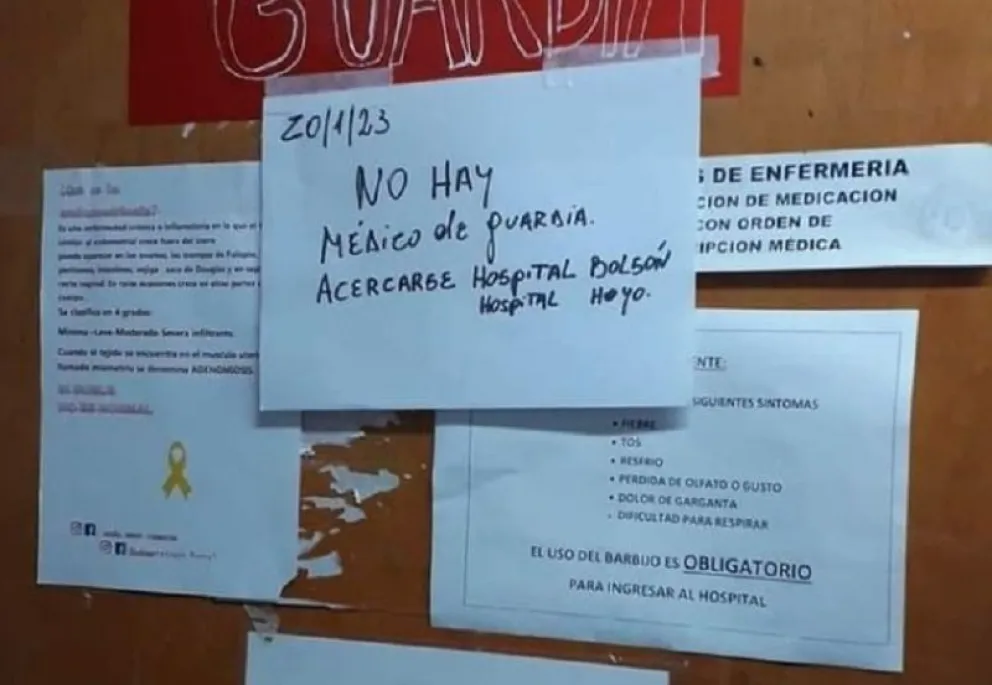 GUARDIA
20/1/23
NO HAY
MÉDICO de GUARDIA.
ACERCARSE HOSPITAL BOLSÓN
HOSPITAL HOYO.
S DE ENFERMERIA
CION DE MEDICACION
CON ORDEN DE
IPCION MÉDICA
¿Qué es la
Es una enfermedad crónica e inflamatoria en la que el
similar al endometrial crece fuera del útero
puede aparecer en los ovarios, las trompas de Falopio,
peritoneo, intestinos, vejiga, saco de Douglas y en
recto vaginal. En raras ocasiones crece en otras partes
cuerpo.
Se clasifica en 4 grados:
Mínima-Leve-Moderado-Severa infiltrante.
Cuando el tejido se encuentra en el musculo
llamado miometrio se denomina ADENOMIOSIS
NO ES NORMAL
NTE:
SIGUIENTES SINTOMAS
• FIEBRE
• TOS
• RESFRIO
• PERDIDA DE OLFATO O GUSTO
• DOLOR DE GARGANTA
• DIFICULTAD PARA RESPIRAR
EL USO DEL BARBIJO ES OBLIGATORIO
PARA INGRESAR AL HOSPITAL